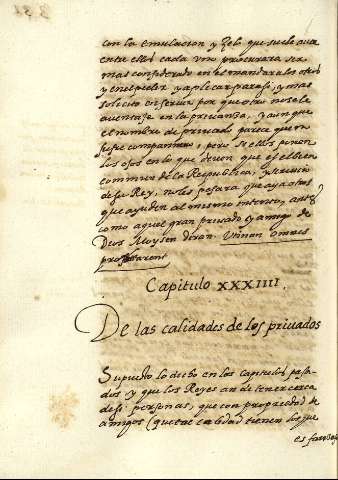 con la emulacion y zelo que suele auer
entre ellos cada vno procurara ser
mas considerado en el mandar a los otros
y en el pedir y aplicar para si, y mas
solicito en seruir por que otro no se le
auentaje en la priuanza, y aunque
el nombre de priuado parece que no
sufre compañero, pero si ellos ponen
los ojos en lo que deuen que es el bien
commun de la Republica, y seruicio
de su Rey, no les pesara que aya otros
que ayuden al mismo intento, antes
como aquel gran priuado y amigo de
Dios Moysen diran. Vtinan omnes
prophetarent
Capitulo XXXIIII.
De las calidades de los priuados
Supuesto lo dicho en los capitulos pasa
dos y que los Reyes an de tener cerca
de si personas, que con propiedad de
amigos (que tal calidad tienen los que